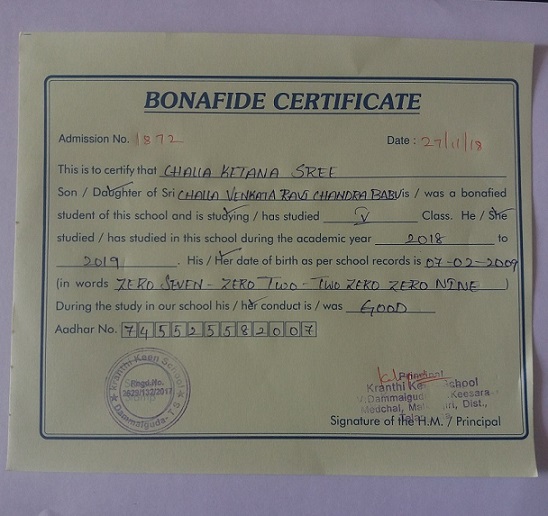 BONAFIDE CERTIFICATE
Admission No. 1872 Date : 27/11/18
This is to certify that CHALLA KETANA SREE
Son / Daughter of Sri CHALLA VENKATA RAVI CHANDRA BABU is / was a bonafied
student of this school and is studying / has studied V Class. He / She
studied / has studied in this school during the academic year 2018 to
2019. His / Her date of birth as per school records is 07-02-2009
(in words ZERO SEVEN - ZERO TWO - TWO ZERO ZERO NINE )
During the study in our school his / her conduct is / was GOOD
Aadhar No. 745525582007
Kranthi Keen School
Regd.No.
Dammaiguda - T.S
Principal
Kranthi Keen School
Keesara
Medchal, Dist.,
Signature of the H.M. / Principal